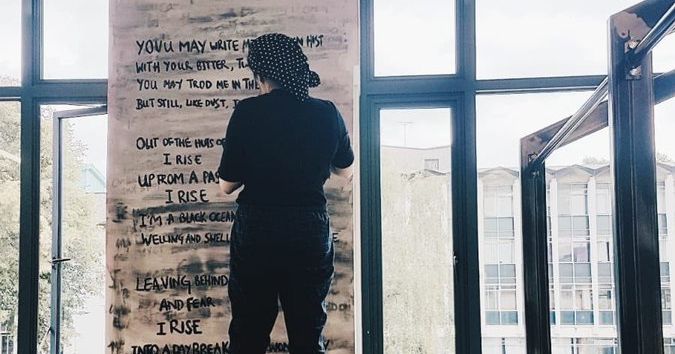 YOVU MAY WRITE
WITH YOUR BITTER,
YOU MAY TROD ME IN THE
BUT STILL, LIKE DUST,
OUT OF THE HUTS OF
I RISE
UP FROM A
I RISE
I'M A BLACK OCEAN
WELLING AND
LEAVING BEHIND
AND FEAR
I RISE
INTO A DAYBREAK